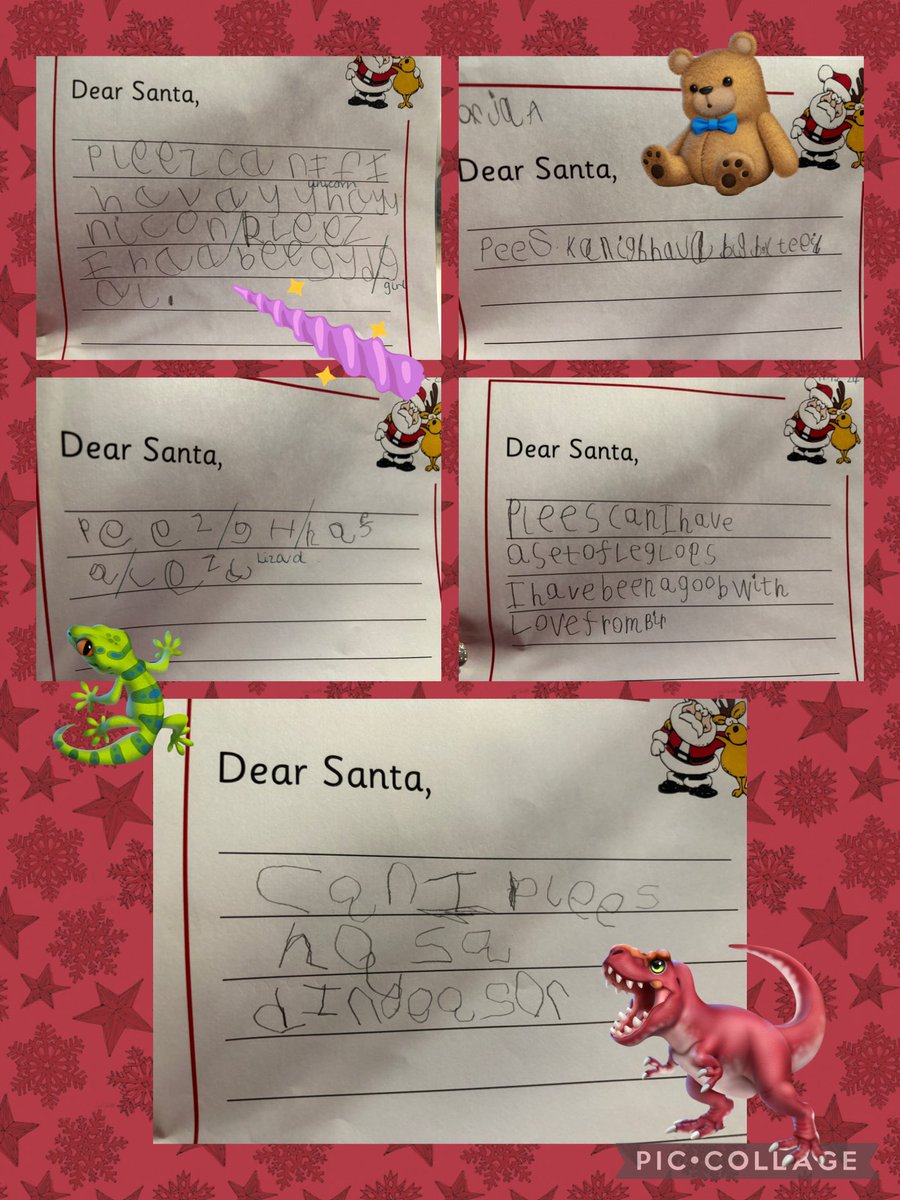 Dear Santa,
Pleez can I f I
havay yhayy
unicorn
nicon/Pleez
I haa beegyd/g
girl
al.
Dear Santa,
Pees. Kanighhava
Dear Santa,
Peez/gH/has
a/Lozd
Lizard
Dear Santa,
Plees can I have
a set of LegLops
I have been a goob with
Love from
Dear Santa,
Can I plees
ha sa
dINdoasor
PIC•COLLAGE